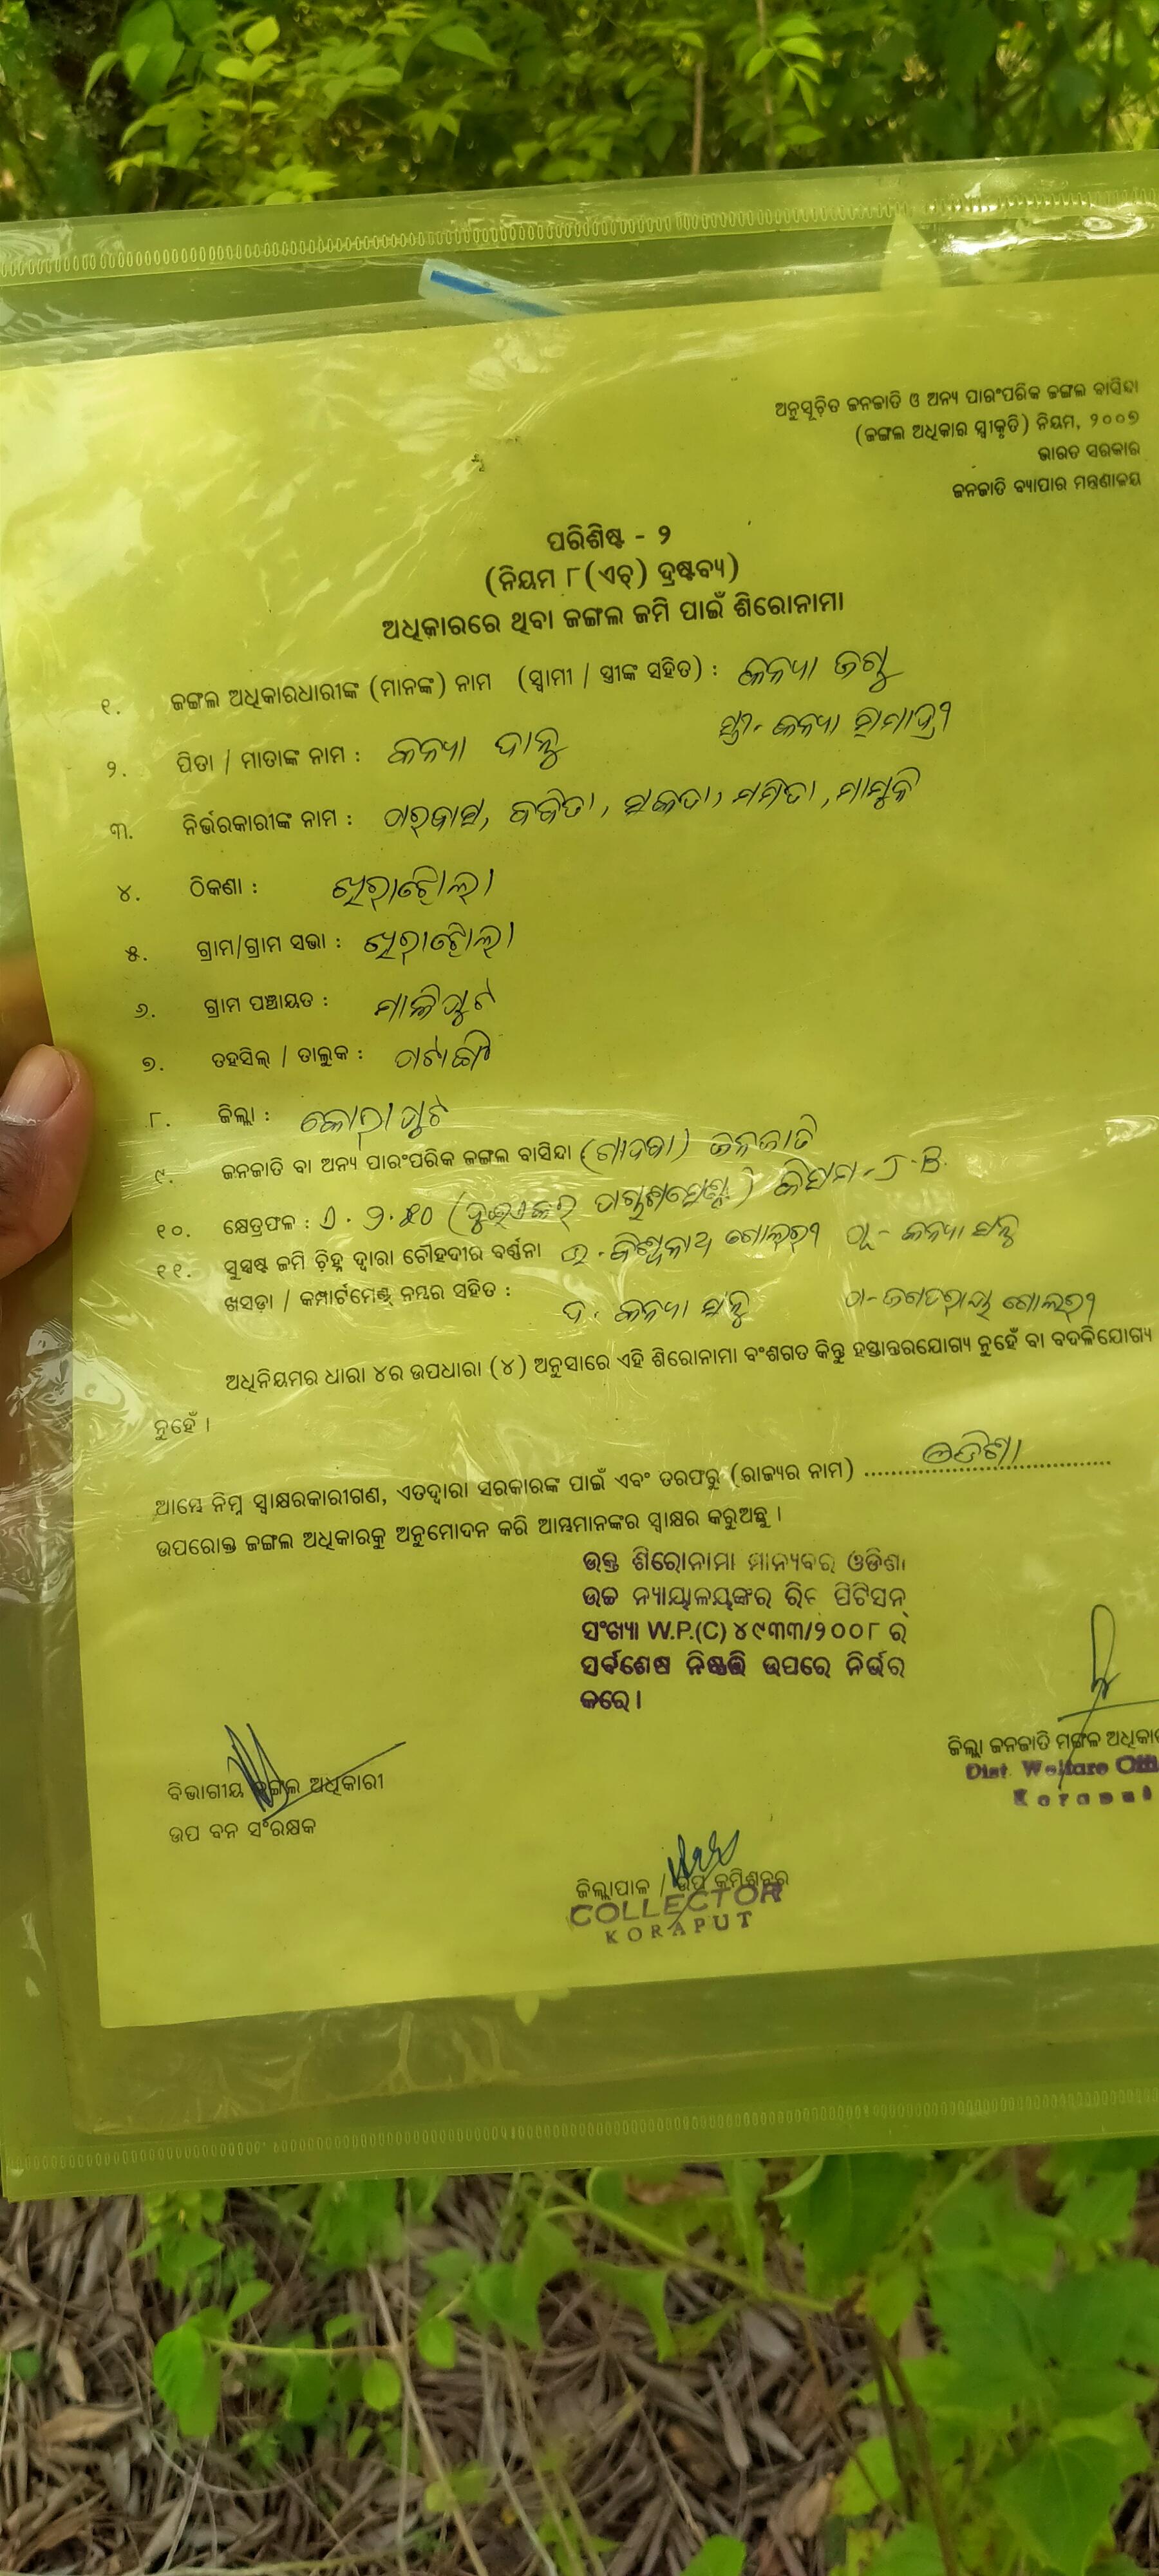 ଅନୁସୂଚିତ ଜନଜାତି ଓ ଅନ୍ୟ ପାରଂପରିକ ଜଙ୍ଗଲ ବାସିନ୍ଦା
(ଜଙ୍ଗଲ ଅଧିକାର ସ୍ୱୀକୃତି) ନିୟମ, ୨୦୦୭
ଭାରତ ସରକାର
ଜନଜାତି ବ୍ୟାପାର ମନ୍ତ୍ରଣାଳୟ
ପରିଶିଷ୍ଟ - ୨
(ନିୟମ ୮(ଏଚ୍) ଦ୍ରଷ୍ଟବ୍ୟ)
ଅଧିକାରରେ ଥିବା ଜଙ୍ଗଲ ଜମି ପାଇଁ ଶିରୋନାମା
୧. ଜଙ୍ଗଲ ଅଧିକାରଧାରୀଙ୍କ (ମାନଙ୍କ) ନାମ (ସ୍ୱାମୀ / ସ୍ତ୍ରୀଙ୍କ ସହିତ) : କନ୍ୟା ଜଗୁ
ସ୍ତ୍ରୀ. କନ୍ୟା
୨. ପିତା / ମାତାଙ୍କ ନାମ : କନ୍ୟା ଦାନୁ
୩. ନିର୍ଭରକାରୀଙ୍କ ନାମ : କବିତା, ମମିତା,
୪. ଠିକଣା :
୫. ଗ୍ରାମ/ଗ୍ରାମ ସଭା :
୬. ଗ୍ରାମ ପଞ୍ଚାୟତ : ମାଳିପୁଟ
୭. ତହସିଲ୍ / ତାଲୁକ : ପଟାଙ୍ଗୀ
୮. ଜିଲ୍ଲା : କୋରାପୁଟ
୯. ଜନଜାତି ବା ଅନ୍ୟ ପାରଂପରିକ ଜଙ୍ଗଲ ବାସିନ୍ଦା (ଗାଦବା) ଜନଜାତି
୧୦. କ୍ଷେତ୍ରଫଳ : ଏ. ୨.୫୦ (ଦୁଇଏକର କିସମ - J.B.
୧୧. ସୁସ୍ପଷ୍ଟ ଜମି ଚିହ୍ନ ଦ୍ୱାରା ଚୌହଦୀର ବର୍ଣ୍ଣନା ଉ - ବିଶ୍ୱନାଥ ଗୋଲରୀ ପୂ - କନ୍ୟା ସନୁ
ଖସଡ଼ା / କମ୍ପାର୍ଟମେଣ୍ଟ୍ ନମ୍ବର ସହିତ : ଦ. କନ୍ୟା ସନୁ ପ - ଗୋଲରୀ
ଅଧିନିୟମର ଧାରା ୪ର ଉପଧାରା (୪) ଅନୁସାରେ ଏହି ଶିରୋନାମା ବଂଶଗତ କିନ୍ତୁ ହସ୍ତାନ୍ତରଯୋଗ୍ୟ ନୁହେଁ ବା ବଦଳିଯୋଗ୍ୟ
ନୁହେଁ ।
ଆମ୍ଭେ ନିମ୍ନ ସ୍ୱାକ୍ଷରକାରୀଗଣ, ଏତଦ୍ୱାରା ସରକାରଙ୍କ ପାଇଁ ଏବଂ ତରଫରୁ (ରାଜ୍ୟର ନାମ) ଓଡିଶା
ଉପରୋକ୍ତ ଜଙ୍ଗଲ ଅଧିକାରକୁ ଅନୁମୋଦନ କରି ଆମ୍ଭମାନଙ୍କର ସ୍ୱାକ୍ଷର କରୁଅଛୁ ।
ଉକ୍ତ ଶିରୋନାମା ମାନ୍ୟବର ଓଡିଶା
ଉଚ୍ଚ ନ୍ୟାୟାଳୟଙ୍କର ରିଟ୍ ପିଟିସନ୍
ସଂଖ୍ୟା W.P.(C) ୪୯୩୩/୨୦୦୮ ର
ସର୍ବଶେଷ ନିଷ୍ପତ୍ତି ଉପରେ ନିର୍ଭର
କରେ ।
ବିଭାଗୀୟ ଜଙ୍ଗଲ ଅଧିକାରୀ
ଉପ ବନ ସଂରକ୍ଷକ
ଜିଲ୍ଲା ଜନଜାତି ମଙ୍ଗଳ
Dist. Welfare
Koraput
ଜିଲ୍ଲାପାଳ / ଉପ କମିଶନର
COLLECTOR
KORAPUT